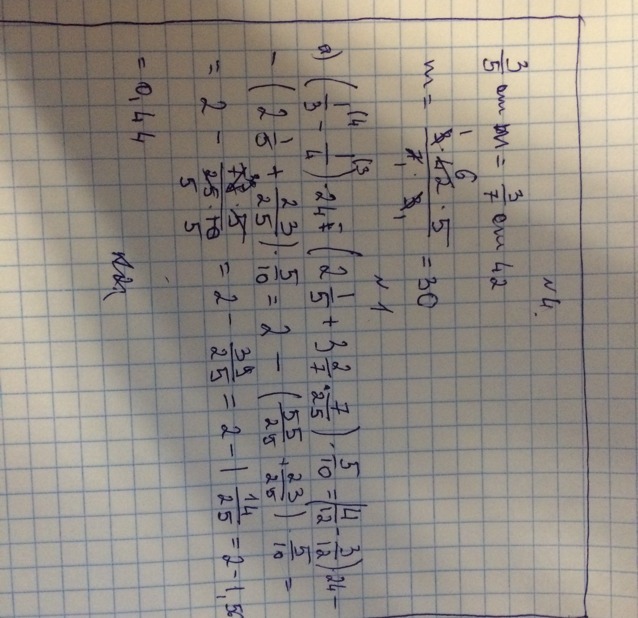 N4.
3/5 от m = 3/7 от 42
m = (3·42·5)/(7·3) = 30
N1
а) (1/3 - 1/4)·24 - (2 1/5 + 3 2/7·7/25)·5/10 = (4/12 - 3/12)·24 -
- (2 1/5 + 23/25)·5/10 = 2 - (55/25 + 23/25)·5/10 =
= 2 - (78·5)/(25·10) = 2 - 39/25 = 2 - 1 14/25 = 2 - 1,5
= 0,44